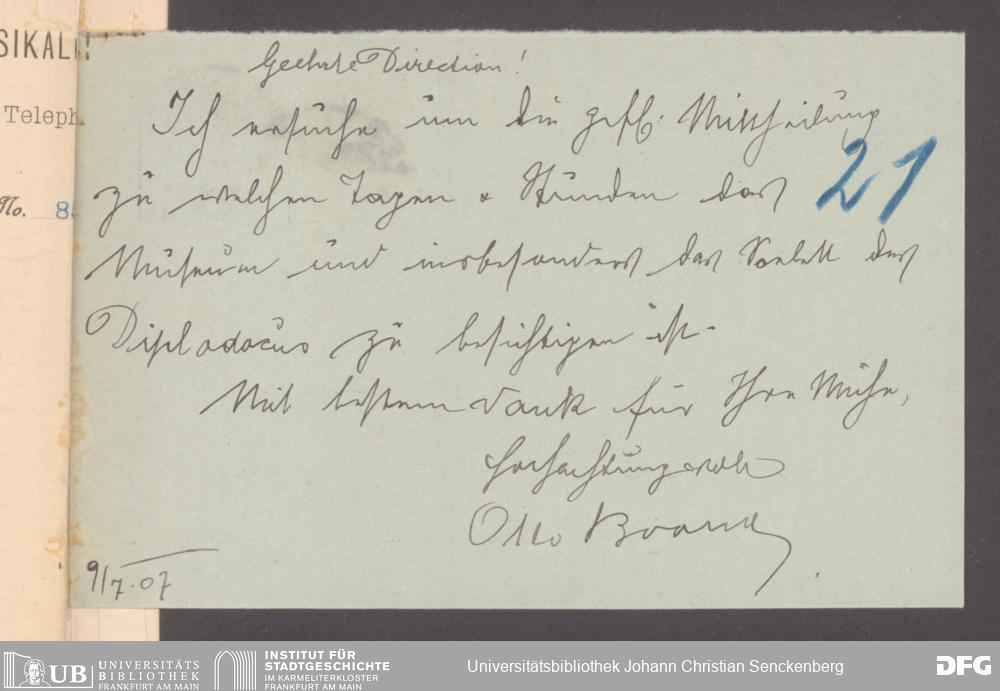 SIKALI
Teleph
No. 8
Geehrte Direction!
Ich ersuche um die gefl. Mittheilung
zu welchen Tagen & Stunden das
21
Museum und insbesonders das Skelett des
Diplodocus zu besichtigen ist.
Mit bestem Dank für Ihre Mühe,
Hochachtungsvoll
Otto
9/7.07
UB UNIVERSITÄTS
BIBLIOTHEK
FRANKFURT AM MAIN
INSTITUT FÜR
STADTGESCHICHTE
IM KARMELITERKLOSTER
FRANKFURT AM MAIN
Universitätsbibliothek Johann Christian Senckenberg
DFG